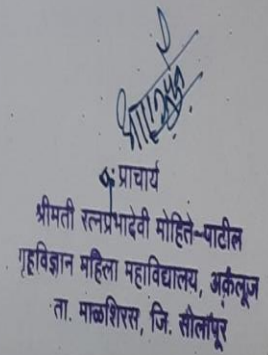 प्र. प्राचार्य
श्रीमती रत्नप्रभादेवी मोहिते-पाटील
गृहविज्ञान महिला महाविद्यालय, अकलूज
ता. माळशिरस, जि. सोलापूर